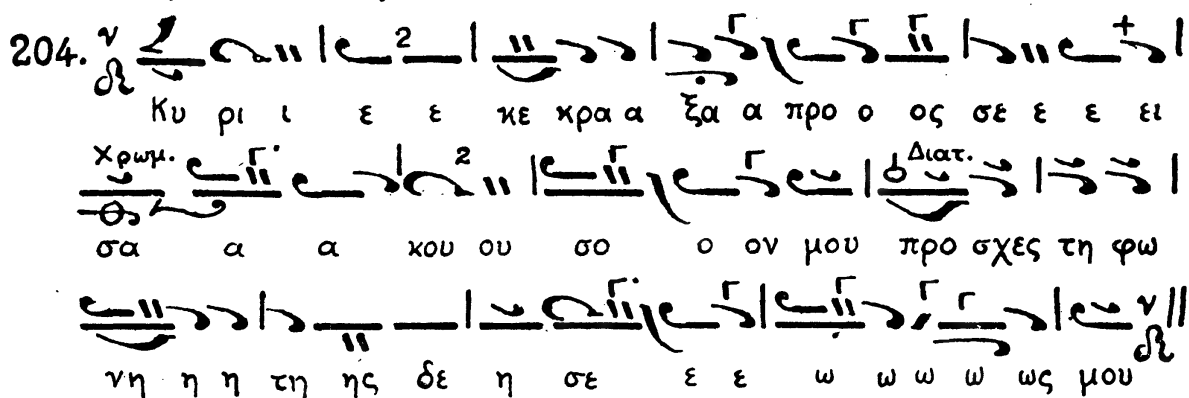 204.
Κυ ρι ι ε ε κε κρα α ξα α προ ο ος σε ε ε ει
Χρωμ.
σα α α κου ου σο ο ον μου προ σχες τη φω
Διατ.
νη η η τη ης δε η σε ε ε ω ω ω ω ως μου